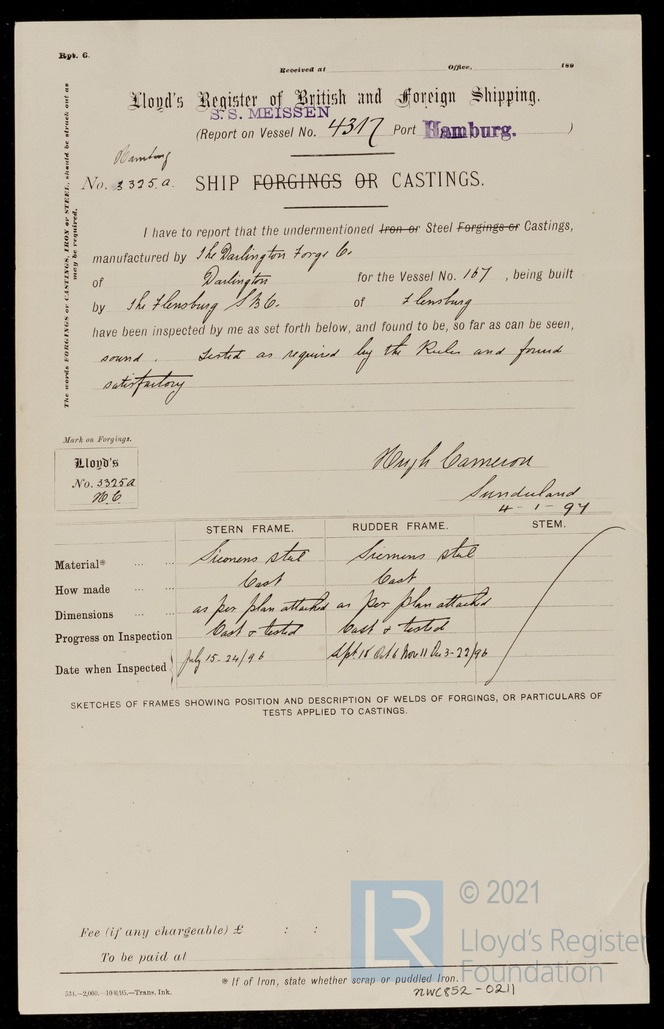 Rpt. 6.
Received at Office, 189
Lloyd's Register of British and Foreign Shipping.
S.S. MEISSEN
(Report on Vessel No. 4317 Port Hamburg. )
Hamburg
No. 3325.a. SHIP FORGINGS OR CASTINGS.
The words FORGINGS or CASTINGS, IRON or STEEL, should be struck out as may be required.
I have to report that the undermentioned Iron or Steel Forgings or Castings,
manufactured by The Darlington Forge Co.
of Darlington for the Vessel No. 167 , being built
by The Flensburg S.B.C. of Flensburg
have been inspected by me as set forth below, and found to be, so far as can be seen,
sound. Tested as required by the Rules and found
satisfactory
Mark on Forgings.
Lloyd's
No. 3325a
H.C.
Hugh Cameron
Sunderland
4-1-97
STERN FRAME. RUDDER FRAME. STEM.
Material* ... ... Siemens steel Siemens steel
How made ... ... Cast Cast
Dimensions ... ... as per plan attached as per plan attached
Progress on Inspection Cast & tested Cast & tested
Date when Inspected July 15-24/96 Sept 18 Oct 6 Nov 11 Dec 3-22/96
SKETCHES OF FRAMES SHOWING POSITION AND DESCRIPTION OF WELDS OF FORGINGS, OR PARTICULARS OF
TESTS APPLIED TO CASTINGS.
Fee (if any chargeable) £ : :
To be paid at
* If of Iron, state whether scrap or puddled Iron.
534.—2,000.—10/6/95.—Trans. Ink.
NWC852-0211
LR
© 2021
Lloyd's Register
Foundation